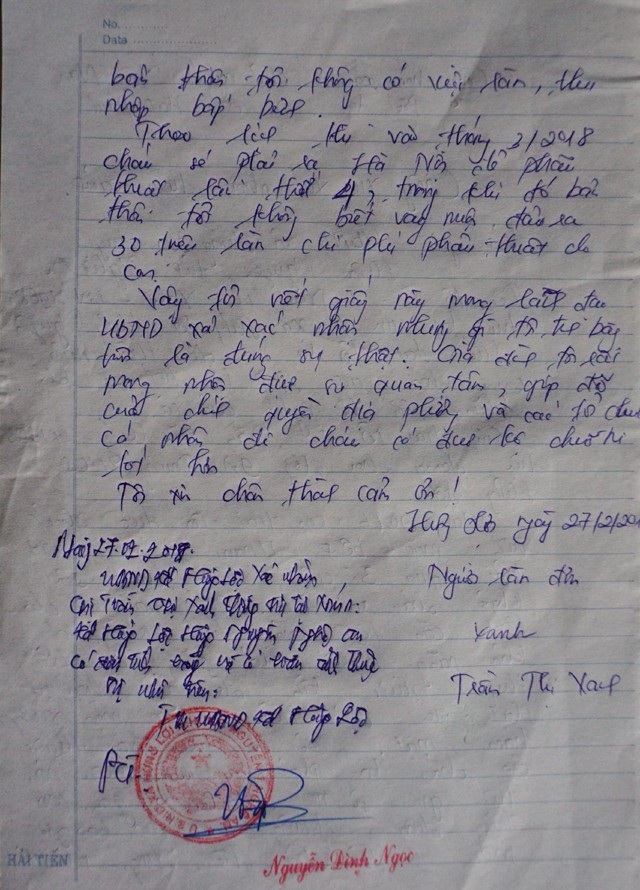 No.
Date
bản thân tôi không có việc làm, thu
nhập bấp bênh.
Theo lịch thì vào tháng 3/2018
cháu sẽ phải ra Hà Nội để phẫu
thuật lần thứ 4, trong khi đó bản
thân tôi không biết vay mượn đâu ra
30 triệu làm chi phí phẫu thuật cho
con.
Vậy tôi viết giấy này mong lãnh đạo
UBND xã xác nhận những gì tôi trình bày
trên là đúng sự thật. Gia đình tôi rất
mong nhận được sự quan tâm, giúp đỡ
của chính quyền địa phương và các tổ chức
cá nhân để cháu có được
tốt hơn
Tôi xin chân thành cảm ơn!
ngày 27/2/20
Ngày 27.02.2018.
UBND xã Hưng Lợi Xác nhận
Người làm đơn
Chị Trần Thị Xanh
xã Hưng Lợi Hưng Nguyên Nghệ An
Xanh
Trần Thị Xanh
TM UBND xã Hưng Lợi
PCT
Nguyễn Đình Ngọc
HẢI TIẾN